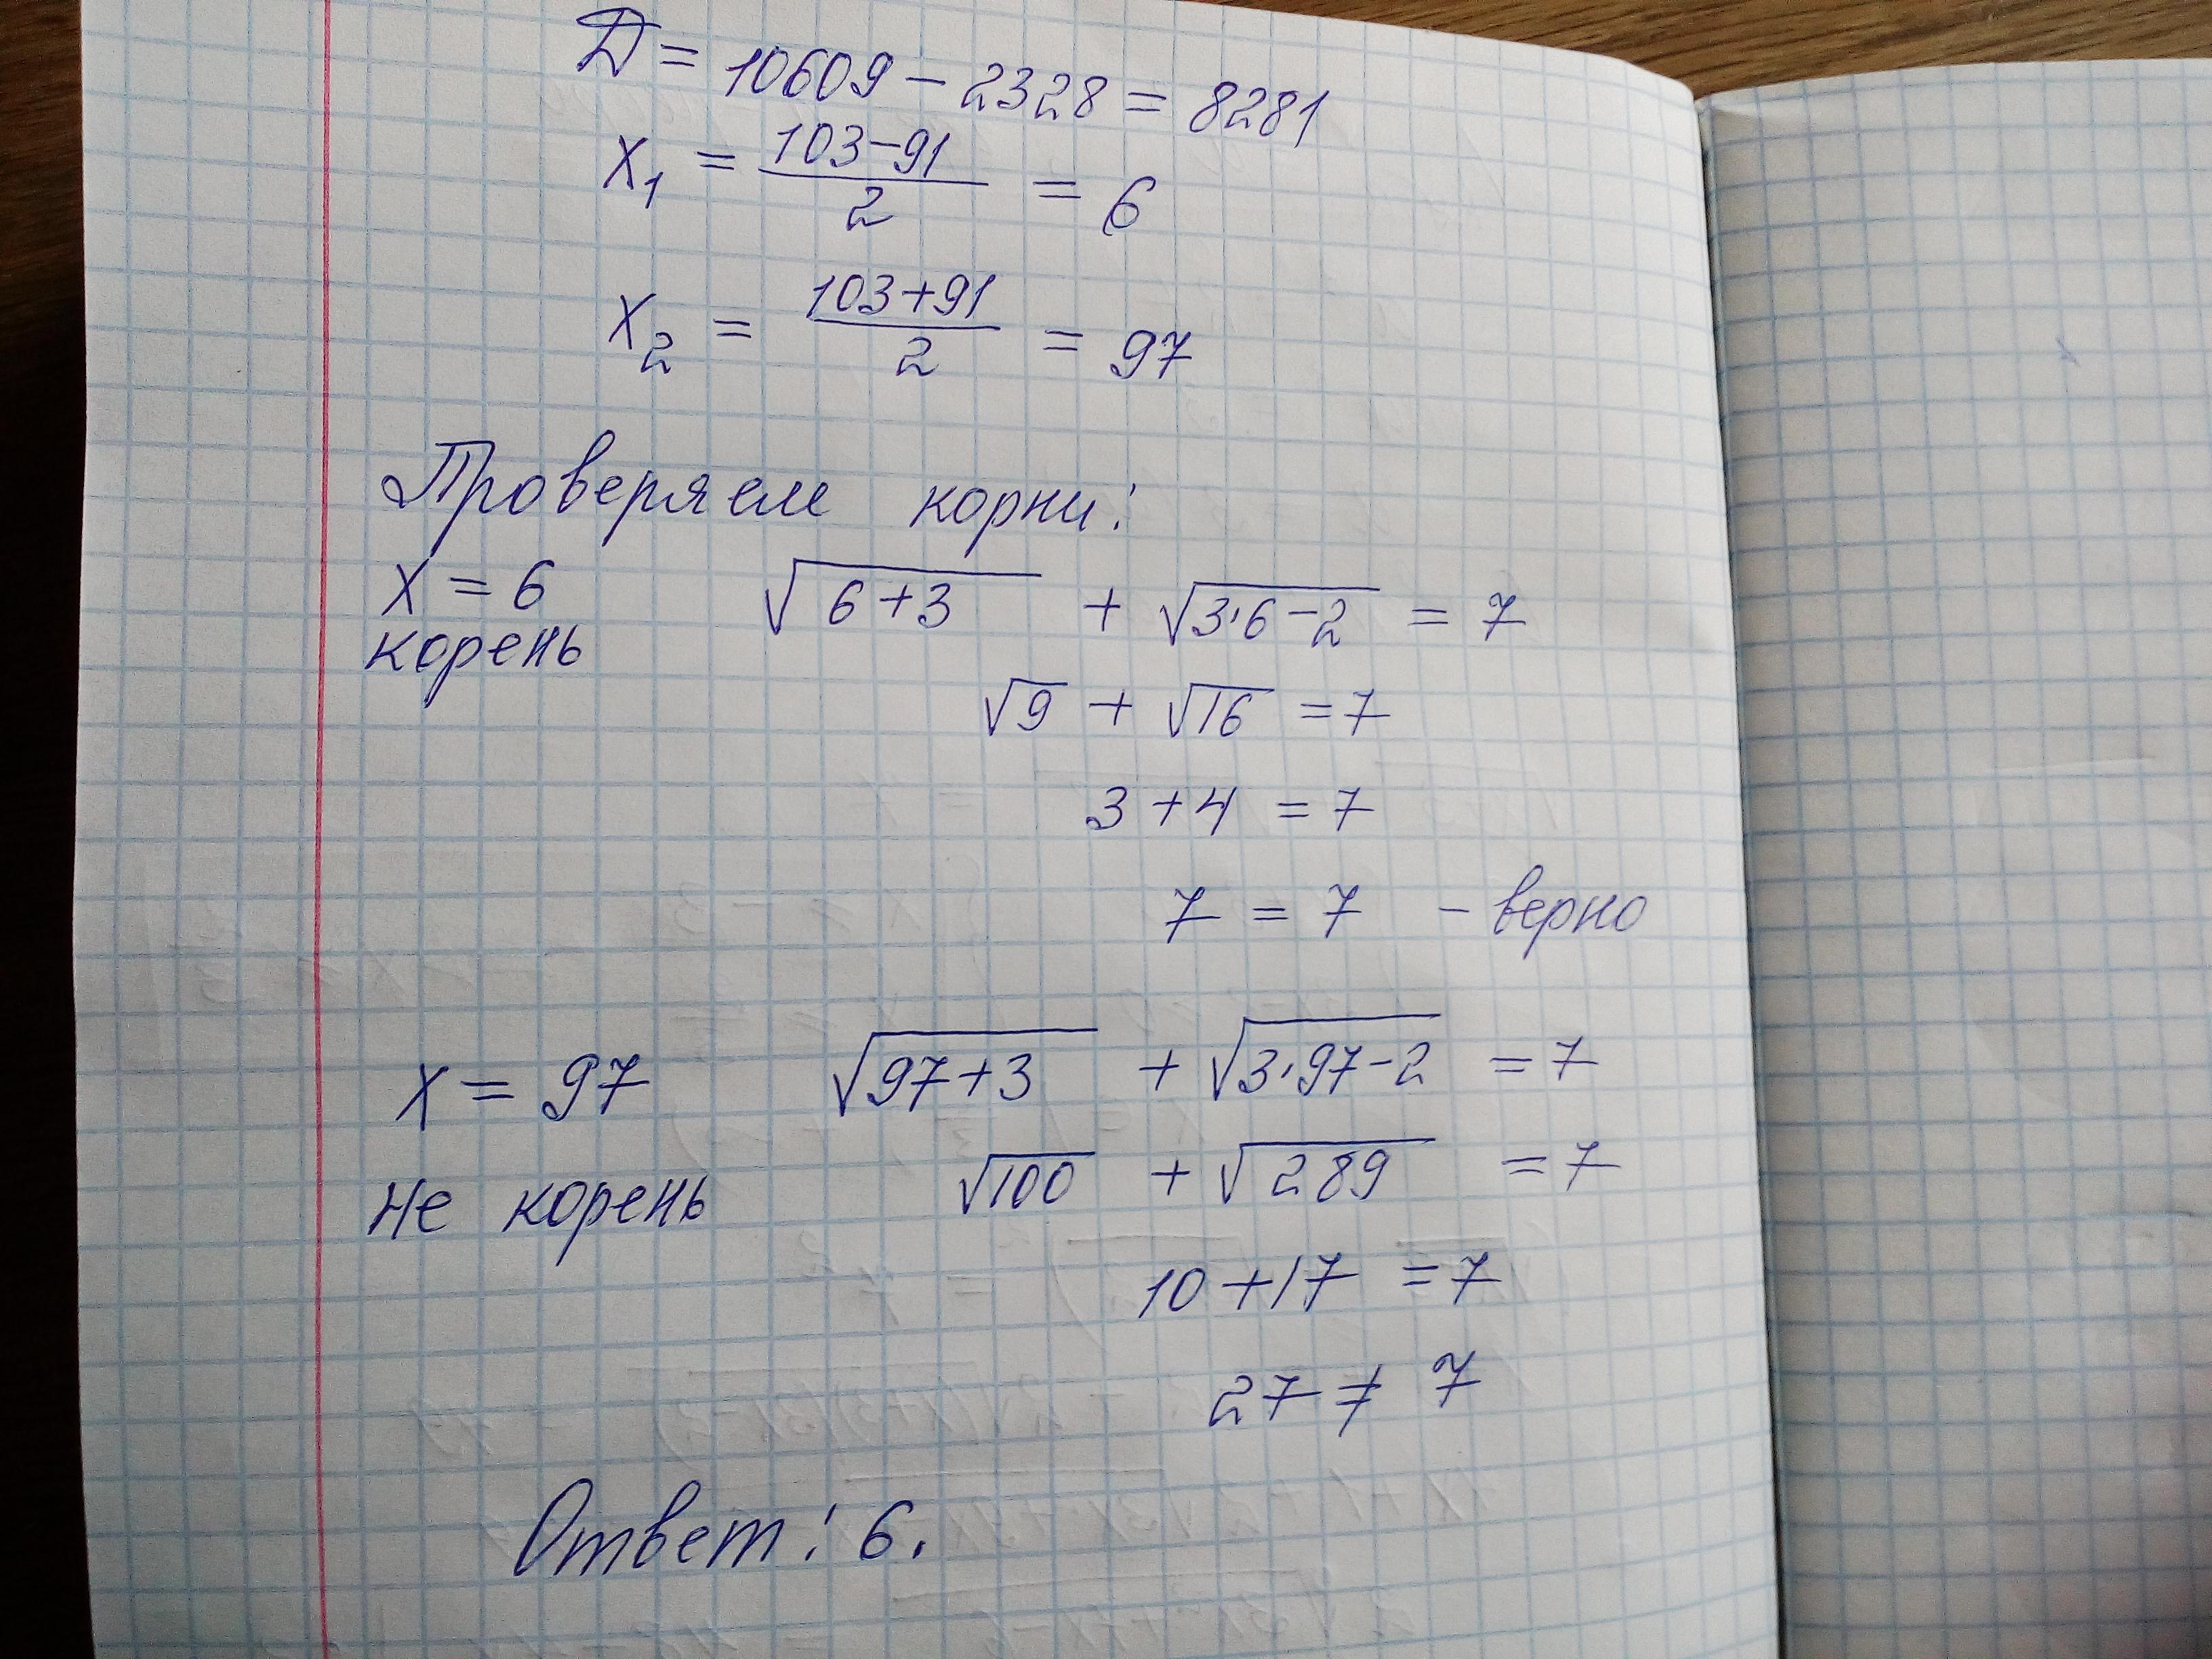 Д = 10609 - 2328 = 8281
x₁ = (103-91)/2 = 6
x₂ = (103+91)/2 = 97
Проверяем корни:
x = 6 √(6+3) + √(3·6-2) = 7
корень
√9 + √16 = 7
3 + 4 = 7
7 = 7 - верно
x = 97 √(97+3) + √(3·97-2) = 7
не корень √100 + √289 = 7
10 + 17 = 7
27 ≠ 7
Ответ: 6.